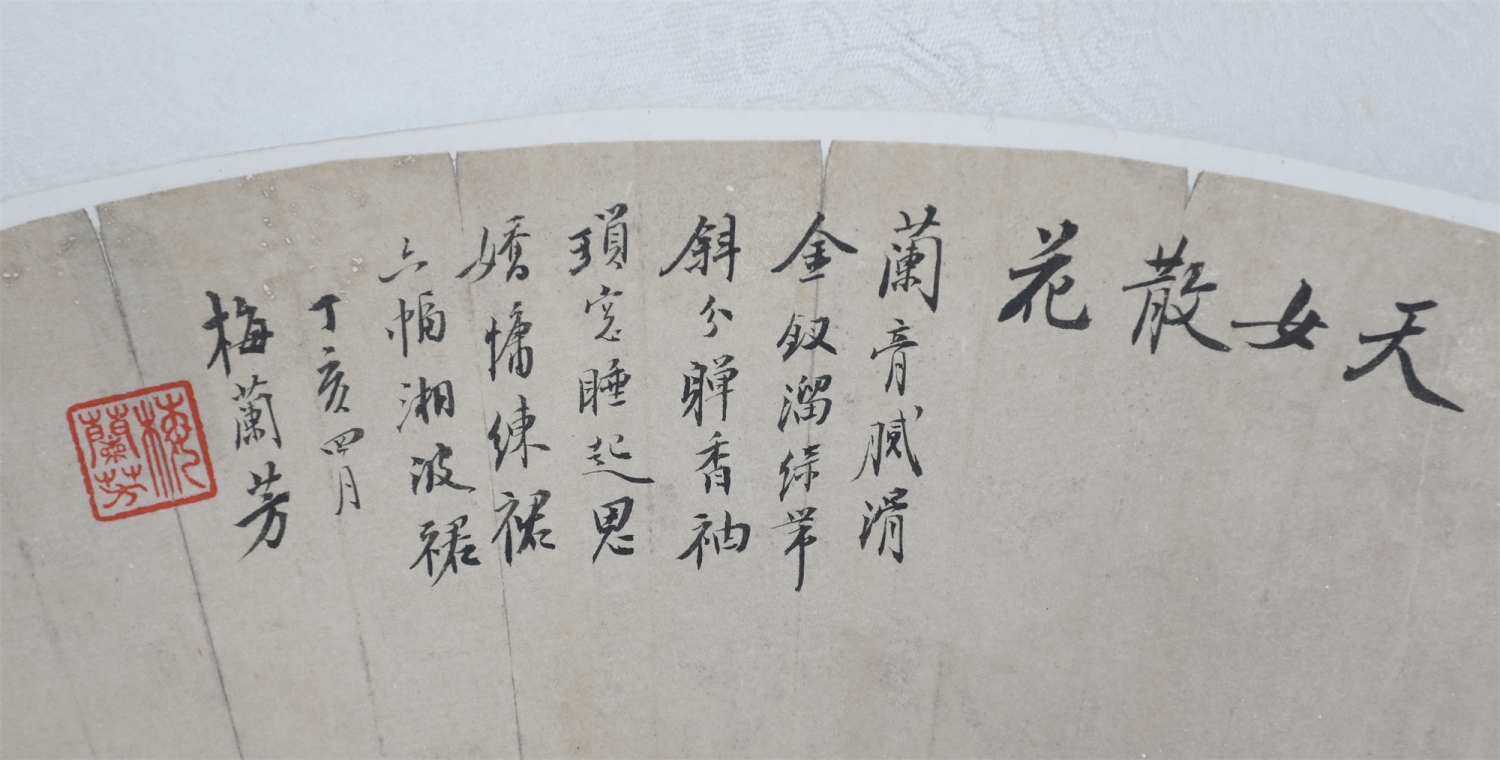 天女散花
蘭膏膩滑
金釵溜綠
斜分軃香袖
瑣窓睡起思
嬌慵練裙
六幅湘波裙
丁亥四月
梅蘭芳
梅蘭芳